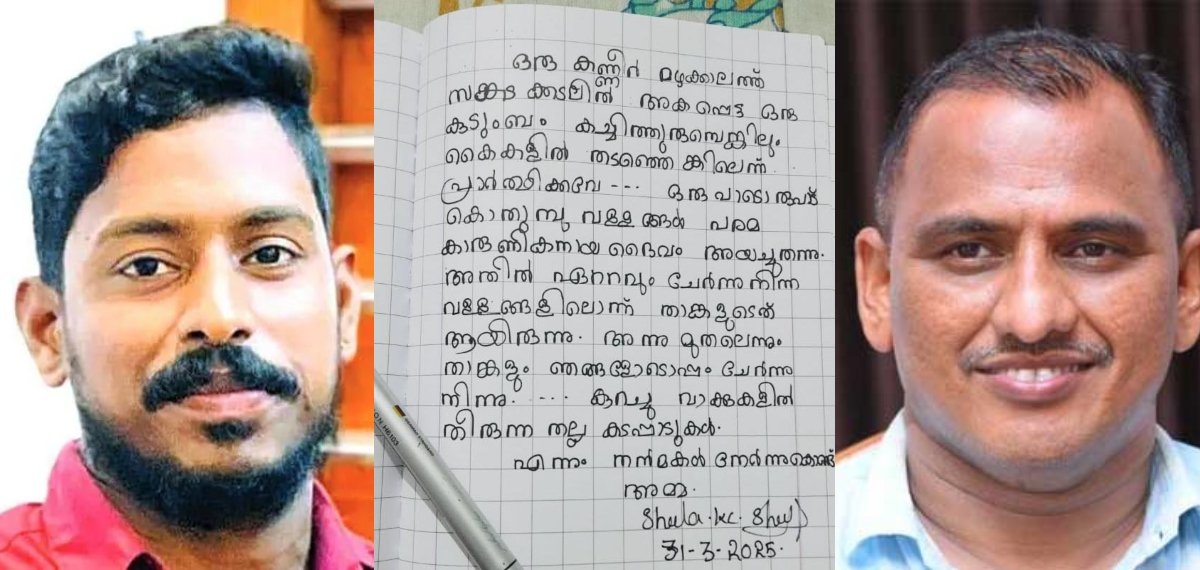 ഒരു കണ്ണീർ മഴക്കാലത്ത്
സങ്കട കടലിൽ അകപ്പെട്ട ഒരു
കുടുംബം കച്ചിത്തുരുമ്പെങ്കിലും
കൈകളിൽ തടഞ്ഞെങ്കിലെന്ന്
പ്രാർത്ഥിക്കവേ --- ഒരുപാടൊരുപാട്
കൊതുമ്പു വള്ളങ്ങൾ പരമ
കാരുണികനായ ദൈവം അയച്ചുതന്നു.
അതിൽ ഏററവും ചേർന്നുനിന്ന
വള്ളങ്ങളിലൊന്ന് താങ്കളുടെത്
ആയിരുന്നു. അന്നു മുതലെന്നും
താങ്കളും ഞങ്ങളോടൊപ്പം ചേർന്നു
നിന്നു. .... കുറച്ചു വാക്കുകളിൽ
തീരുന്നതല്ല കടപ്പാടുകൾ.
എന്നും നന്മകൾ നേർന്നുകൊണ്ട്
അമ്മ.
Sheela.kc.
31-3-2025.